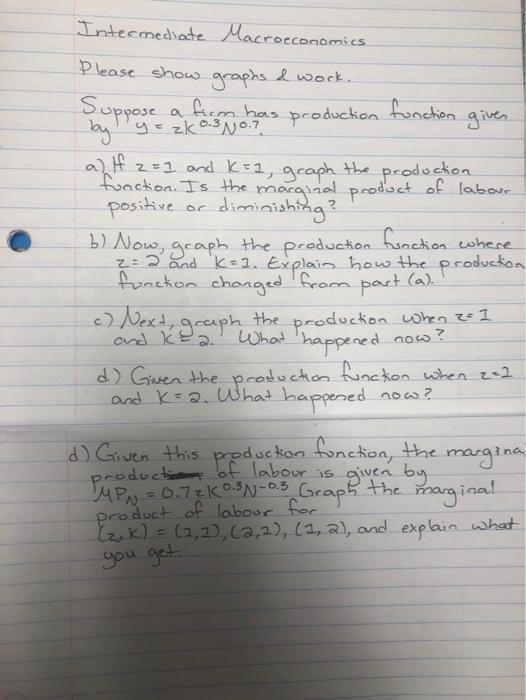 Intermediate Macroeconomics
Please show graphs & work.
Suppose a firm has production function given
by y = zK^0.3 N^0.7.
a) If z=1 and K=1, graph the production
function. Is the marginal product of labour
positive or diminishing?
b) Now, graph the production function where
z=2 and K=1. Explain how the production
function changed from part (a).
c) Next, graph the production when z=1
and K=2. What happened now?
d) Given the production function when z=2
and K=2. What happened now?
d) Given this production function, the margina
product of labour is given by
MP_N = 0.7zK^0.3 N^-0.3. Graph the marginal
product of labour for
(z,K) = (1,1), (2,1), (1,2), and explain what
you get.